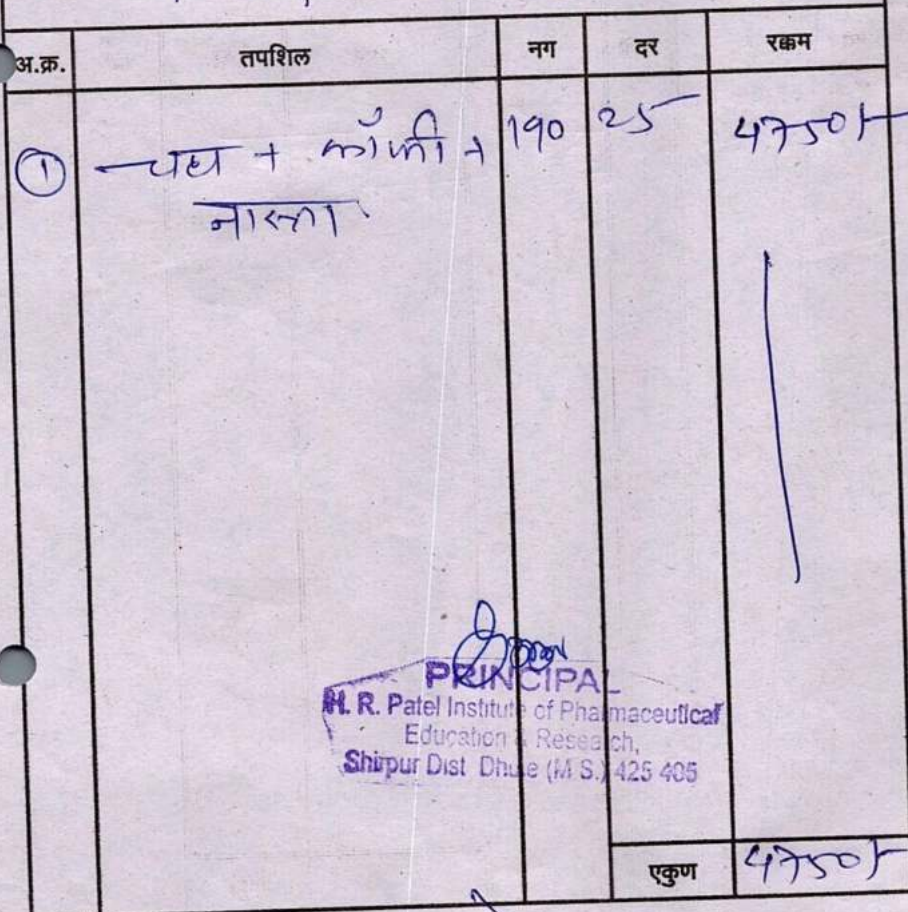 अ.क्र. तपशिल नग दर रक्कम
① चहा + कॉफी + 190 25 4750/-
नास्ता
PRINCIPAL
H. R. Patel Institute of Pharmaceutical
Education & Research,
Shirpur Dist Dhule (M S.) 425 405
एकुण 4750/-